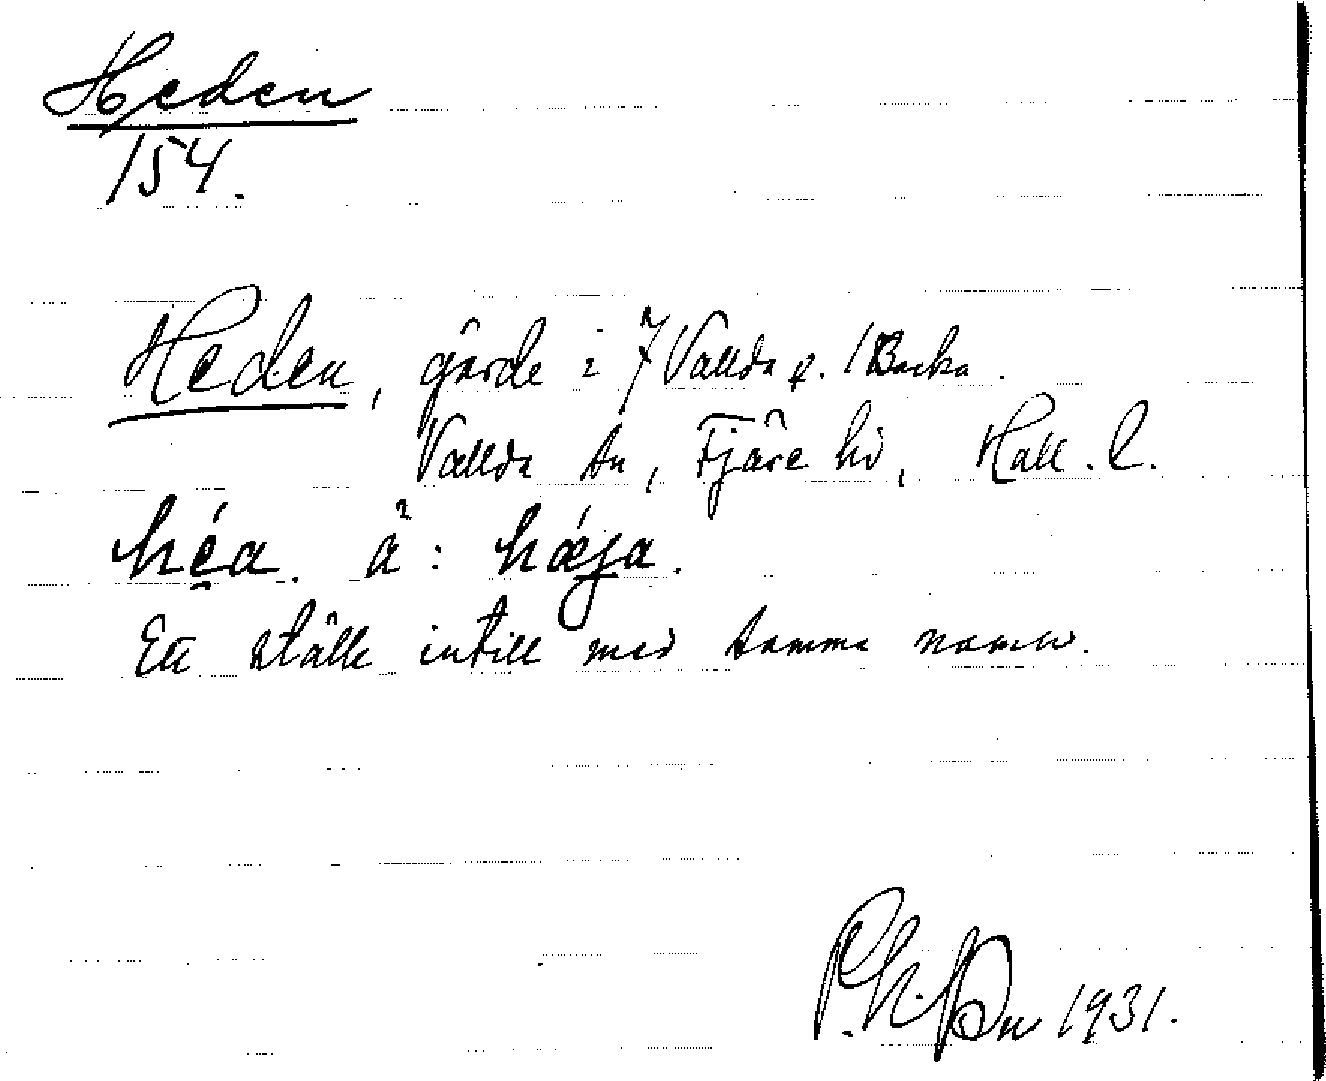 Heden
154.
Heden, gärde i 7 Vallda f. 1 Backa.
Vallda sn, Fjäre hd, Hall. l.
héa. ä:
Ett ställe intill med samma namn.
1931.